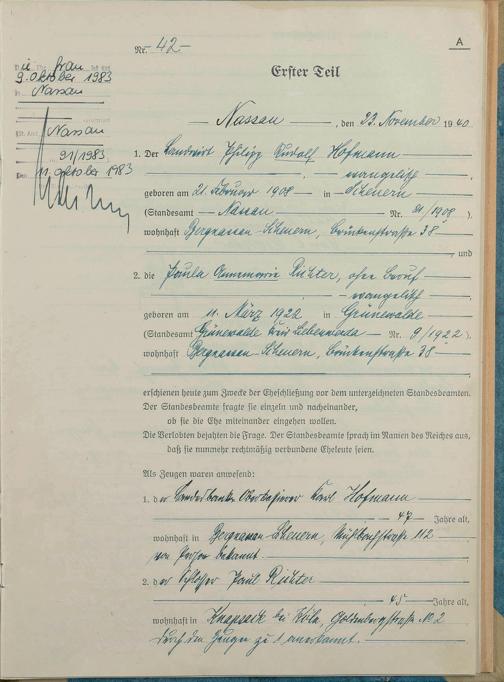 A
Nr. 42
Erster Teil
die Frau
9. Oktober 1983
Nassau
Nassau
91/1983
11. Oktober 1983
Nassau, den 23. November 1940
1. Der Landwirt Philipp Rudolf Hofmann
evangelisch
geboren am 21. Februar 1908 in Scheuern
(Standesamt Nassau Nr. 21/1908),
wohnhaft Bergnassau-Scheuern, Brückenstraße 38
und
2. die Paula Annemarie Richter, ohne Beruf
evangelisch
geboren am 11. März 1922 in Grünewalde
(Standesamt Grünewalde Kreis Liebenwerda Nr. 9/1922),
wohnhaft Bergnassau-Scheuern, Brückenstraße 38
erschienen heute zum Zwecke der Eheschließung vor dem unterzeichneten Standesbeamten.
Der Standesbeamte fragte sie einzeln und nacheinander,
ob sie die Ehe miteinander eingehen wollen.
Die Verlobten bejahten die Frage. Der Standesbeamte sprach im Namen des Reiches aus,
daß sie nunmehr rechtmäßig verbundene Eheleute seien.
Als Zeugen waren anwesend:
1. der Landesbank Oberkassierer Karl Hofmann
47 Jahre alt,
wohnhaft in Bergnassau-Scheuern, Mühlbachstraße 112
von Person bekannt.
2. der Schlosser Paul Richter
45 Jahre alt,
wohnhaft in Knapsack bei Köln, Goldenbergstraße No 2
durch den Zeugen zu 1 anerkannt.